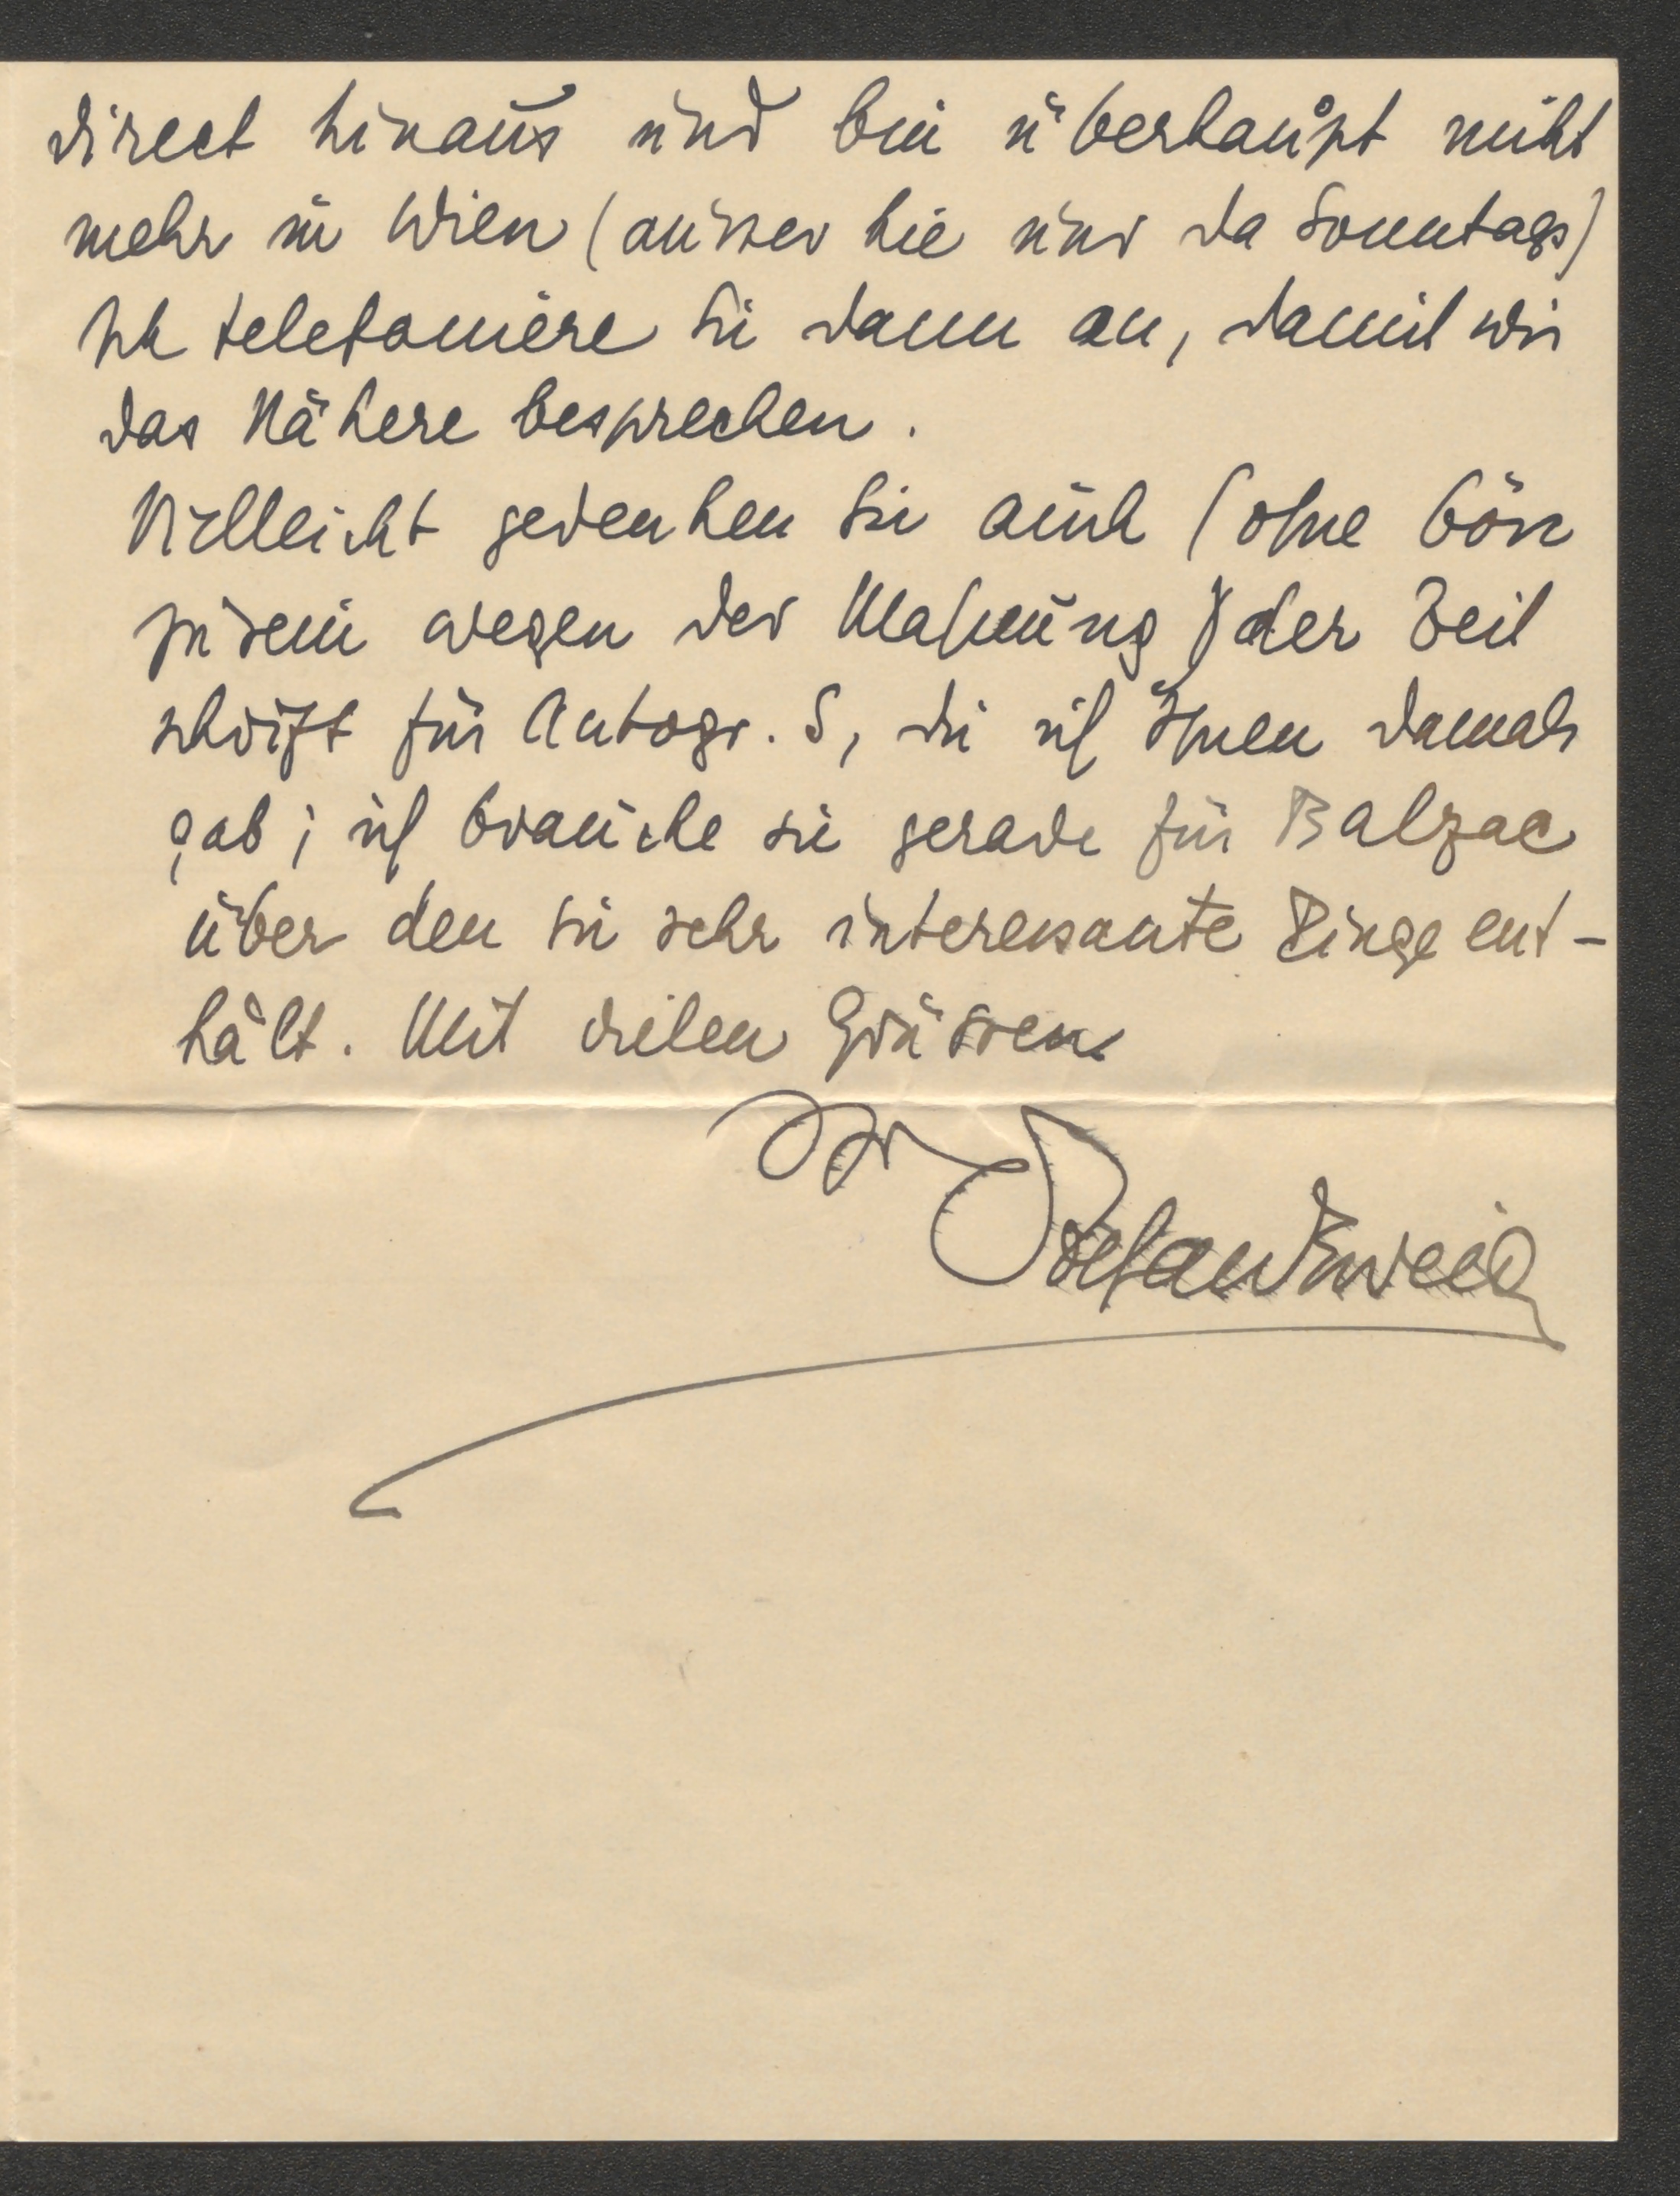 direct hinaus und bin überhaupt nicht
mehr in Wien (ausser hie und da Sonntags)
Ich telefoniere Sie dann an, damit wir
das Nähere besprechen.
Vielleicht gedenken Sie auch (ohne bös
zu sein wegen der Mahnung) der Zeit
schrift für Autogr. S, die ich Ihnen damals
gab; ich brauche sie gerade für Balzac
über den sie sehr interessante Dinge ent-
hält. Mit vielen Grüssen
Ihr Stefan Zweig